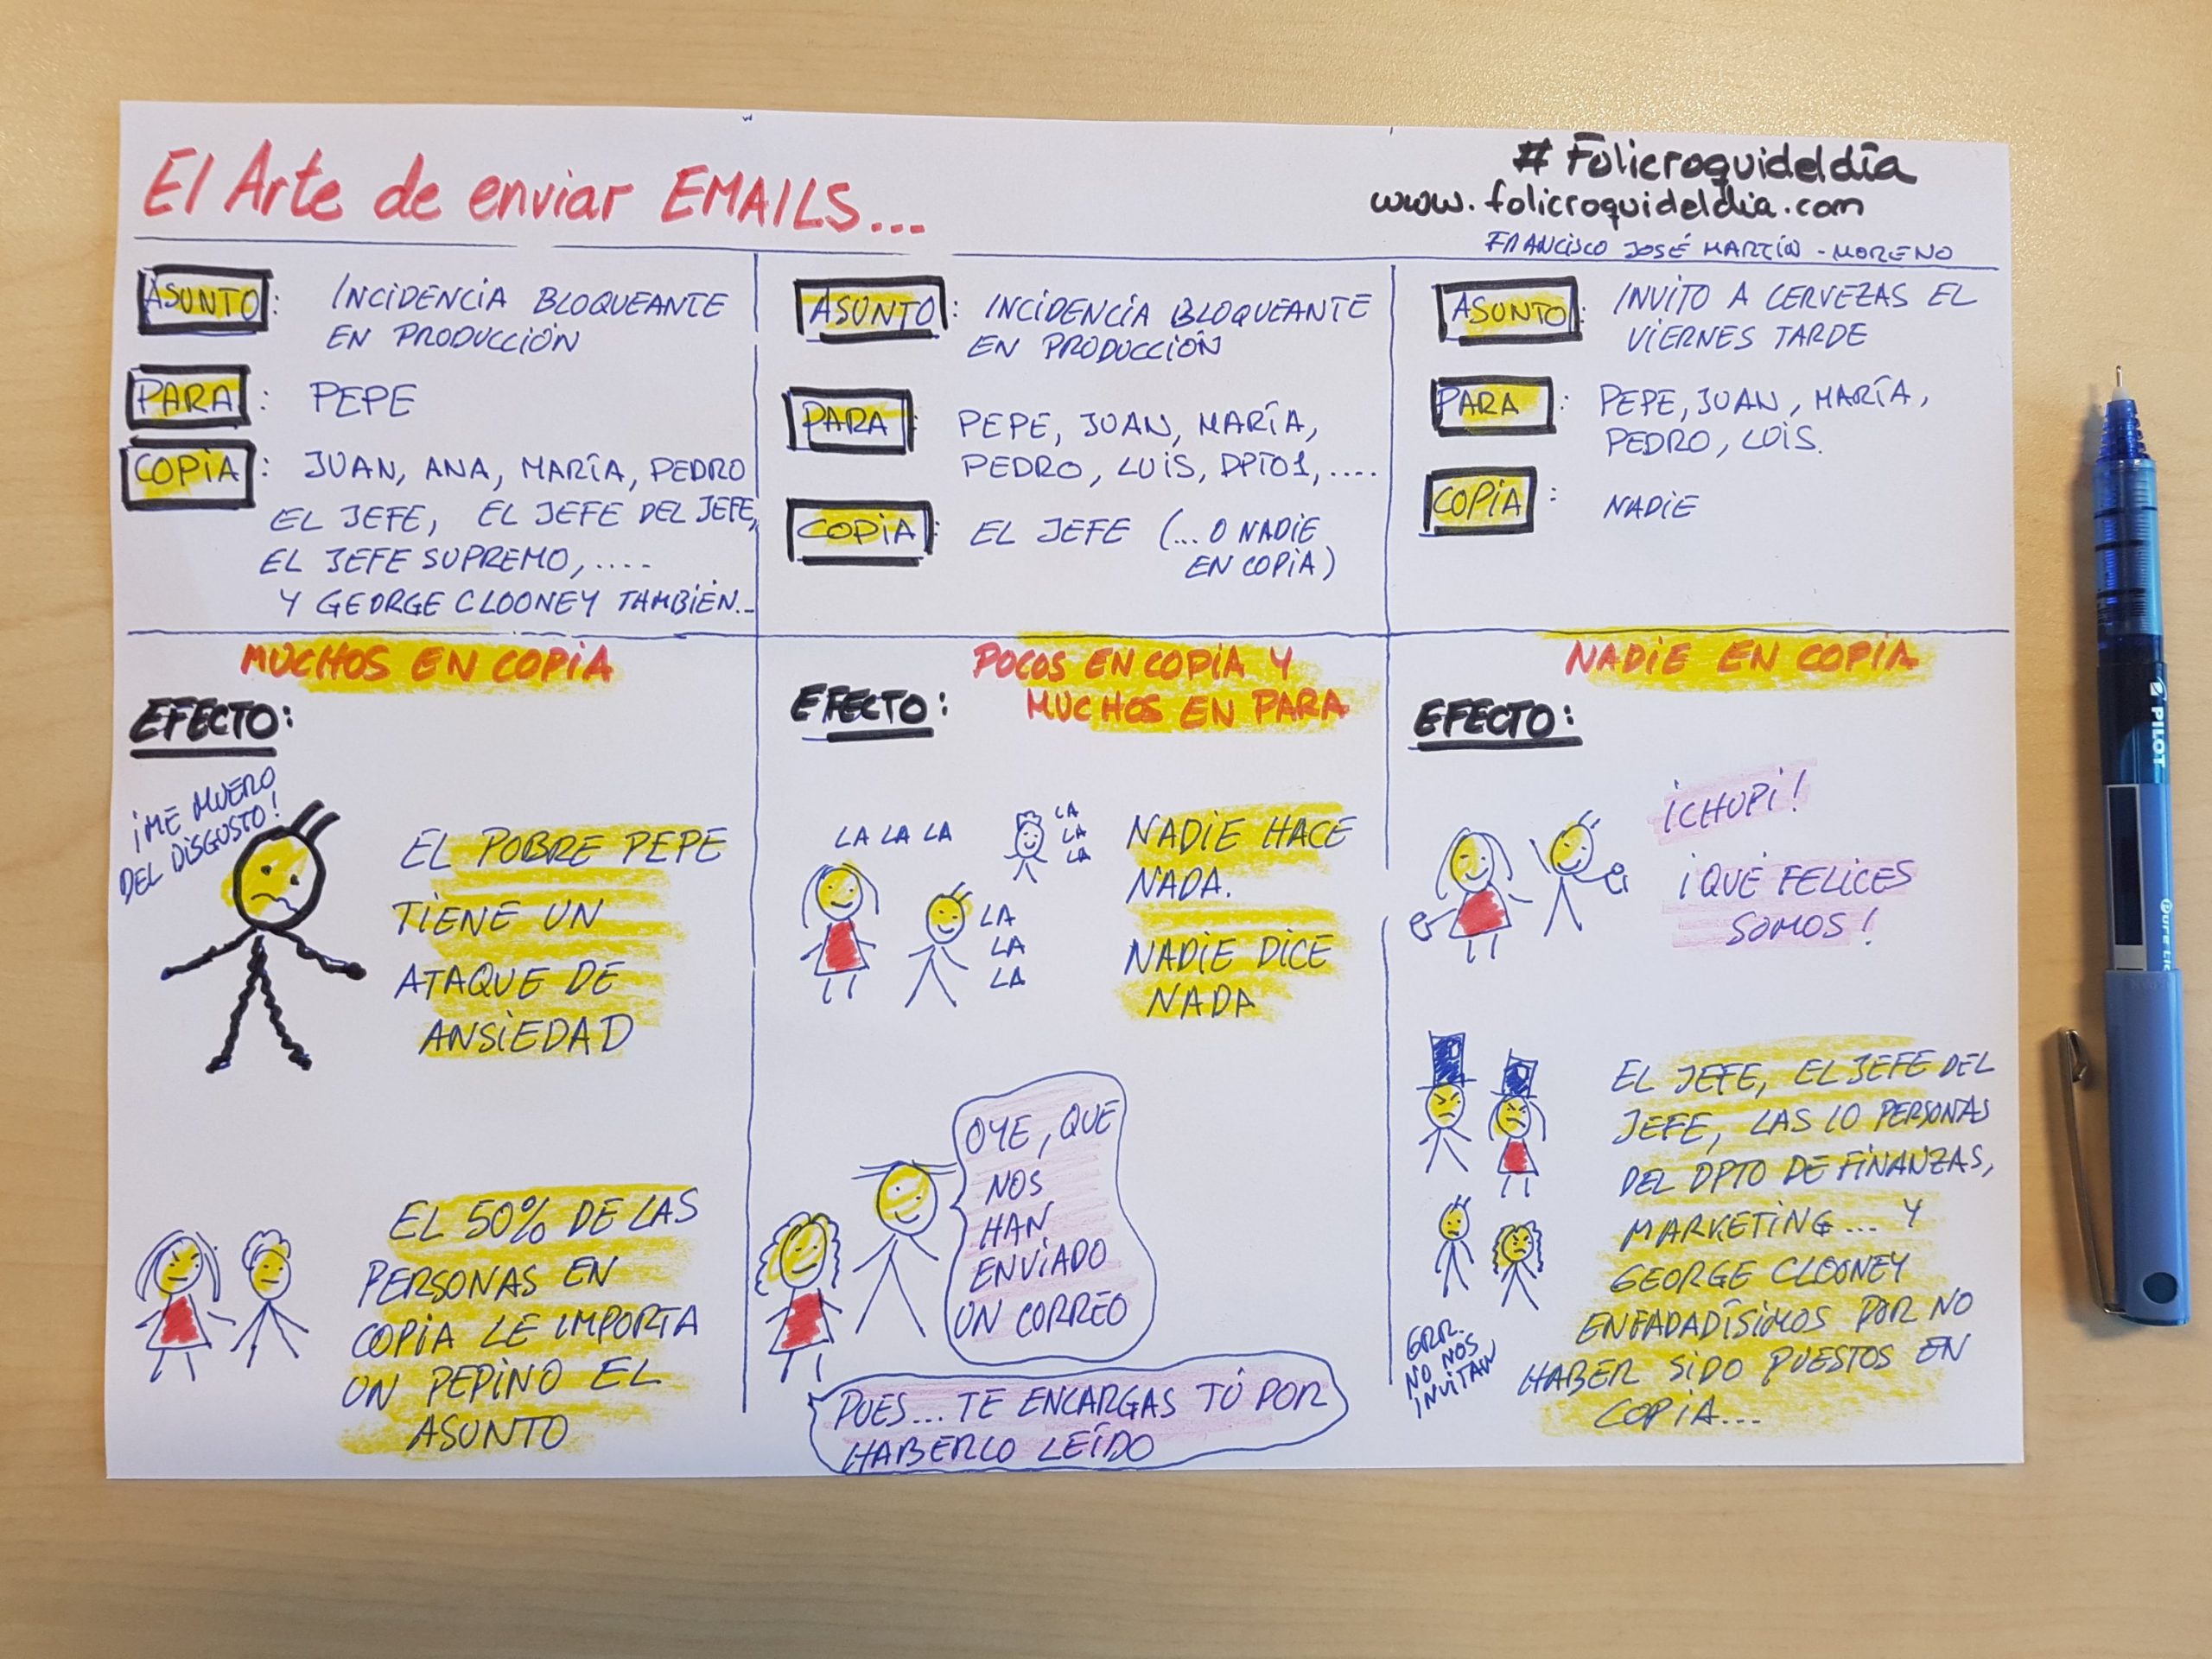 El Arte de enviar EMAILS...
# Folicroquideldía
www.folicroquideldia.com
FRANCISCO JOSÉ MARTÍN-MORENO
ASUNTO: INCIDENCIA BLOQUEANTE
EN PRODUCCIÓN
PARA: PEPE
COPIA: JUAN, ANA, MARÍA, PEDRO
EL JEFE, EL JEFE DEL JEFE,
EL JEFE SUPREMO, ....
Y GEORGE CLOONEY TAMBIÉN...
MUCHOS EN COPIA
EFECTO:
¡ME MUERO
DEL DISGUSTO!
EL POBRE PEPE
TIENE UN
ATAQUE DE
ANSIEDAD
EL 50% DE LAS
PERSONAS EN
COPIA LE IMPORTA
UN PEPINO EL
ASUNTO
ASUNTO: INCIDENCIA BLOQUEANTE
EN PRODUCCIÓN
PARA: PEPE, JUAN, MARÍA,
PEDRO, LUIS, DPTO1, ....
COPIA: EL JEFE (... O NADIE
EN COPIA)
POCOS EN COPIA Y
MUCHOS EN PARA
EFECTO:
LA LA LA
LA
LA
LA
LA
LA
LA
NADIE HACE
NADA.
NADIE DICE
NADA
OYE, QUE
NOS
HAN
ENVIADO
UN CORREO
PUES... TE ENCARGAS TÚ POR
HABERLO LEÍDO
ASUNTO: INVITO A CERVEZAS EL
VIERNES TARDE
PARA: PEPE, JUAN, MARÍA,
PEDRO, LUIS.
COPIA: NADIE
NADIE EN COPIA
EFECTO:
¡CHUPI!
¡QUÉ FELICES
SOMOS!
EL JEFE, EL JEFE DEL
JEFE, LAS 10 PERSONAS
DEL DPTO DE FINANZAS,
MARKETING... Y
GEORGE CLOONEY
ENFADADÍSIMOS POR NO
HABER SIDO PUESTOS EN
COPIA...
GRR.
NO NOS
INVITAN
PILOT